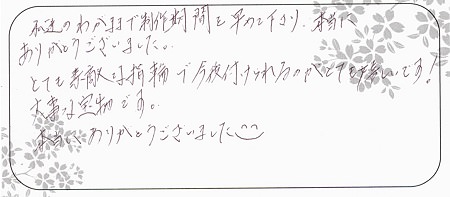 私達のわがままで制作期間を早めて下さり、本当に
ありがとうございました。
とても素敵な指輪で今後付けられるのがとても嬉しいです!
大事な宝物です。
本当にありがとうございました